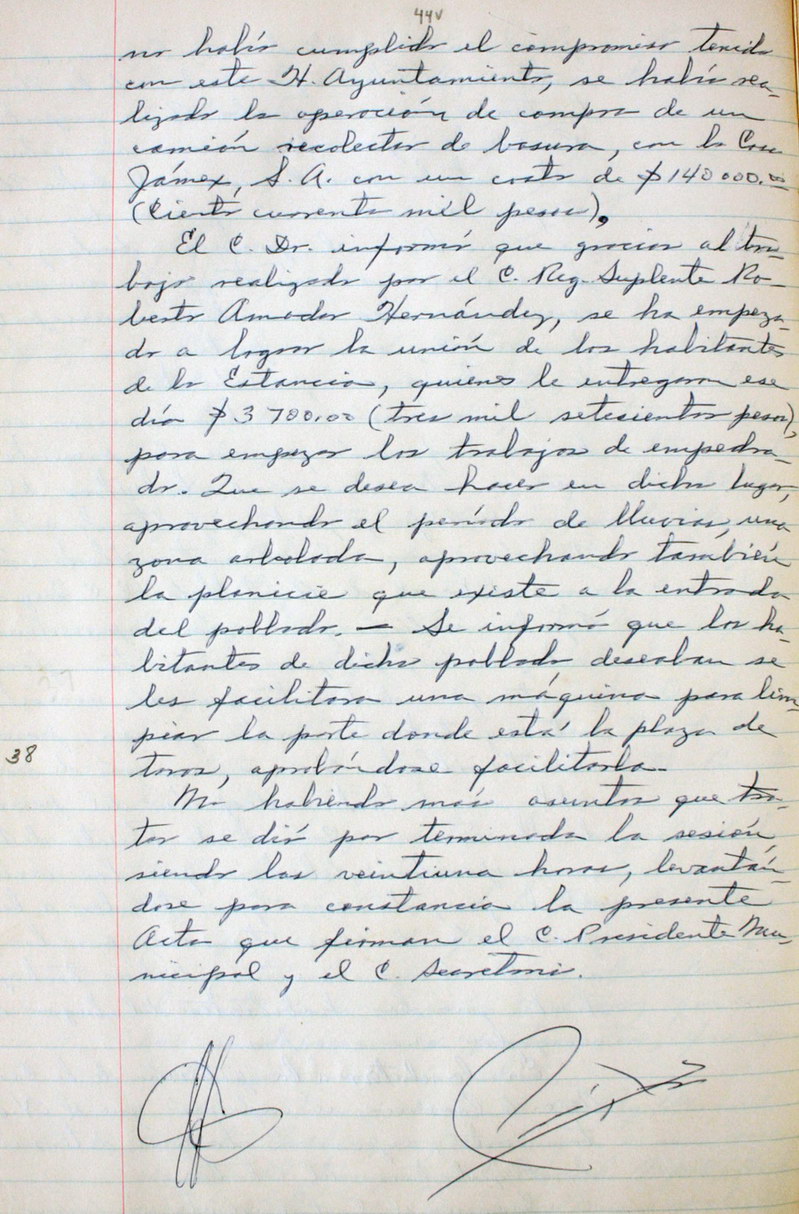 44v
no había cumplido el compromiso tenido
con este H. Ayuntamiento, se había rea-
lizado la operación de compra de un
camión recolector de basura, con la Casa
Jámex, S. A. con un costo de $140 000.00
(Ciento cuarenta mil pesos),
El C. Dr. informó que gracias al tra-
bajo realizado por el C. Reg. Suplente Ro-
berto Amador Hernández, se ha empeza-
do a lograr la unión de los habitantes
de la Estancia, quienes le entregaron ese
día $3 700.00 (tres mil setesientos pesos),
para empezar los trabajos de empedra-
do. Que se desea hacer en dicho lugar,
aprovechando el período de lluvias, una
zona arbolada, aprovechando también
la planicie que existe a la entrada
del poblado. — Se informó que los ha-
bitantes de dicho poblado deseaban se
les facilitara una máquina para lim-
piar la parte donde está la plaza de
38
toros, aprobándose facilitarla.
No habiendo más asuntos que tra-
tar se dió por terminada la sesión,
siendo las veintiuna horas, levantán-
dose para constancia la presente
Acta que firman el C. Presidente Mu-
nicipal y el C. Secretario.